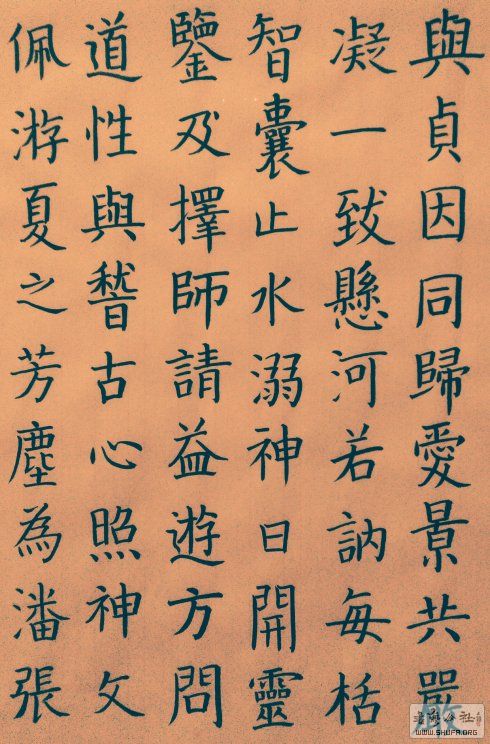 與貞因同歸愛景共嚴
凝一致懸河若訥每栝
智囊止水溺神日開靈
鑒及擇師請益遊方問
道性與稽古心照神文
佩游夏之芳塵為潘張
公社
WWW.SHUFA.ORG